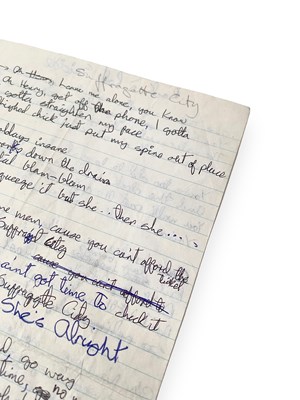 Suffragette City
Oh leave me alone, you know
Oh Henry, get off the phone, I gotta
gotta straighten my face
thighed chick just put my spine out of place
days insane
down the drain
blam-blam
squeeze it but she... then she....
man, cause you cant afford the
ticket
Suffragette city
cause you can't afford to
aint got time to check it
Suffragette City
She's Alright
go way
time, no